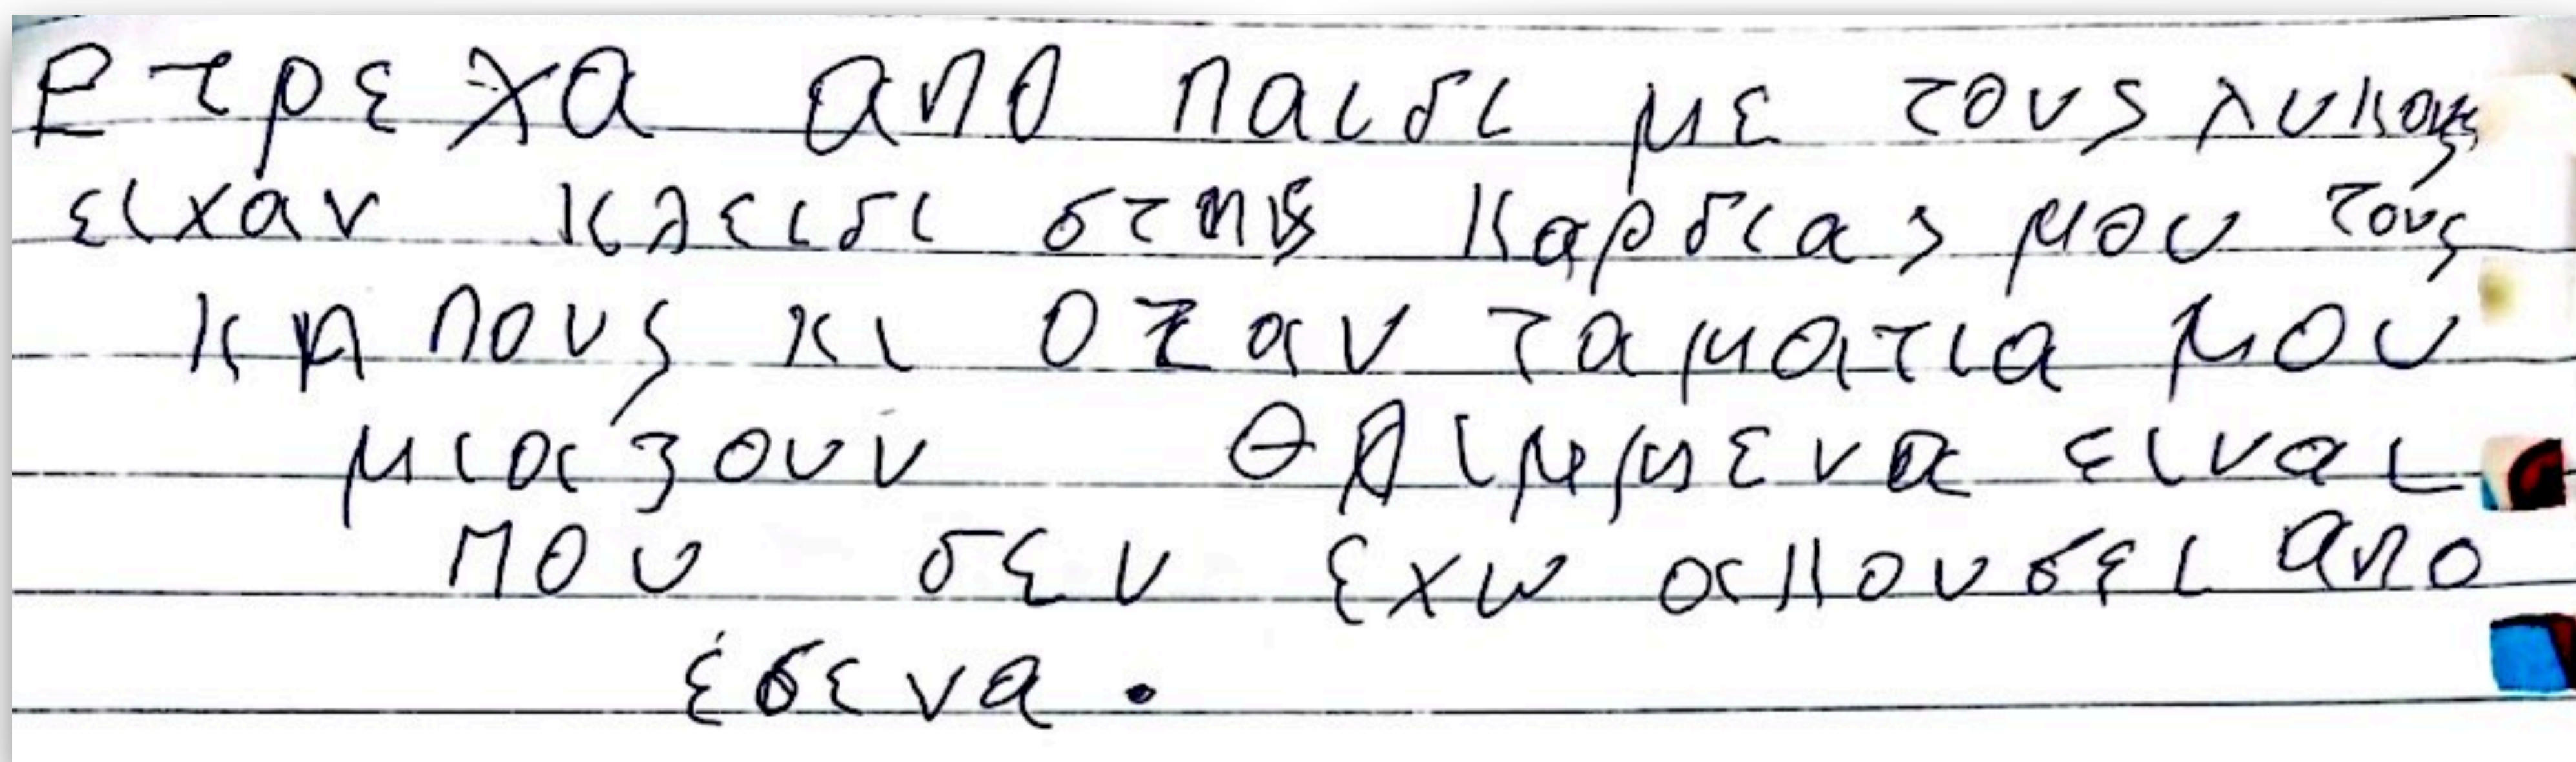 Ετρεχα απο παιδι με τους λυκους
ειχαν κλειδι στης καρδιας μου τους
κηπους κι οταν τα ματια μου
μιαζουν θλιμμενα ειναι
που δεν εχω ακουσει απο
έσενα.